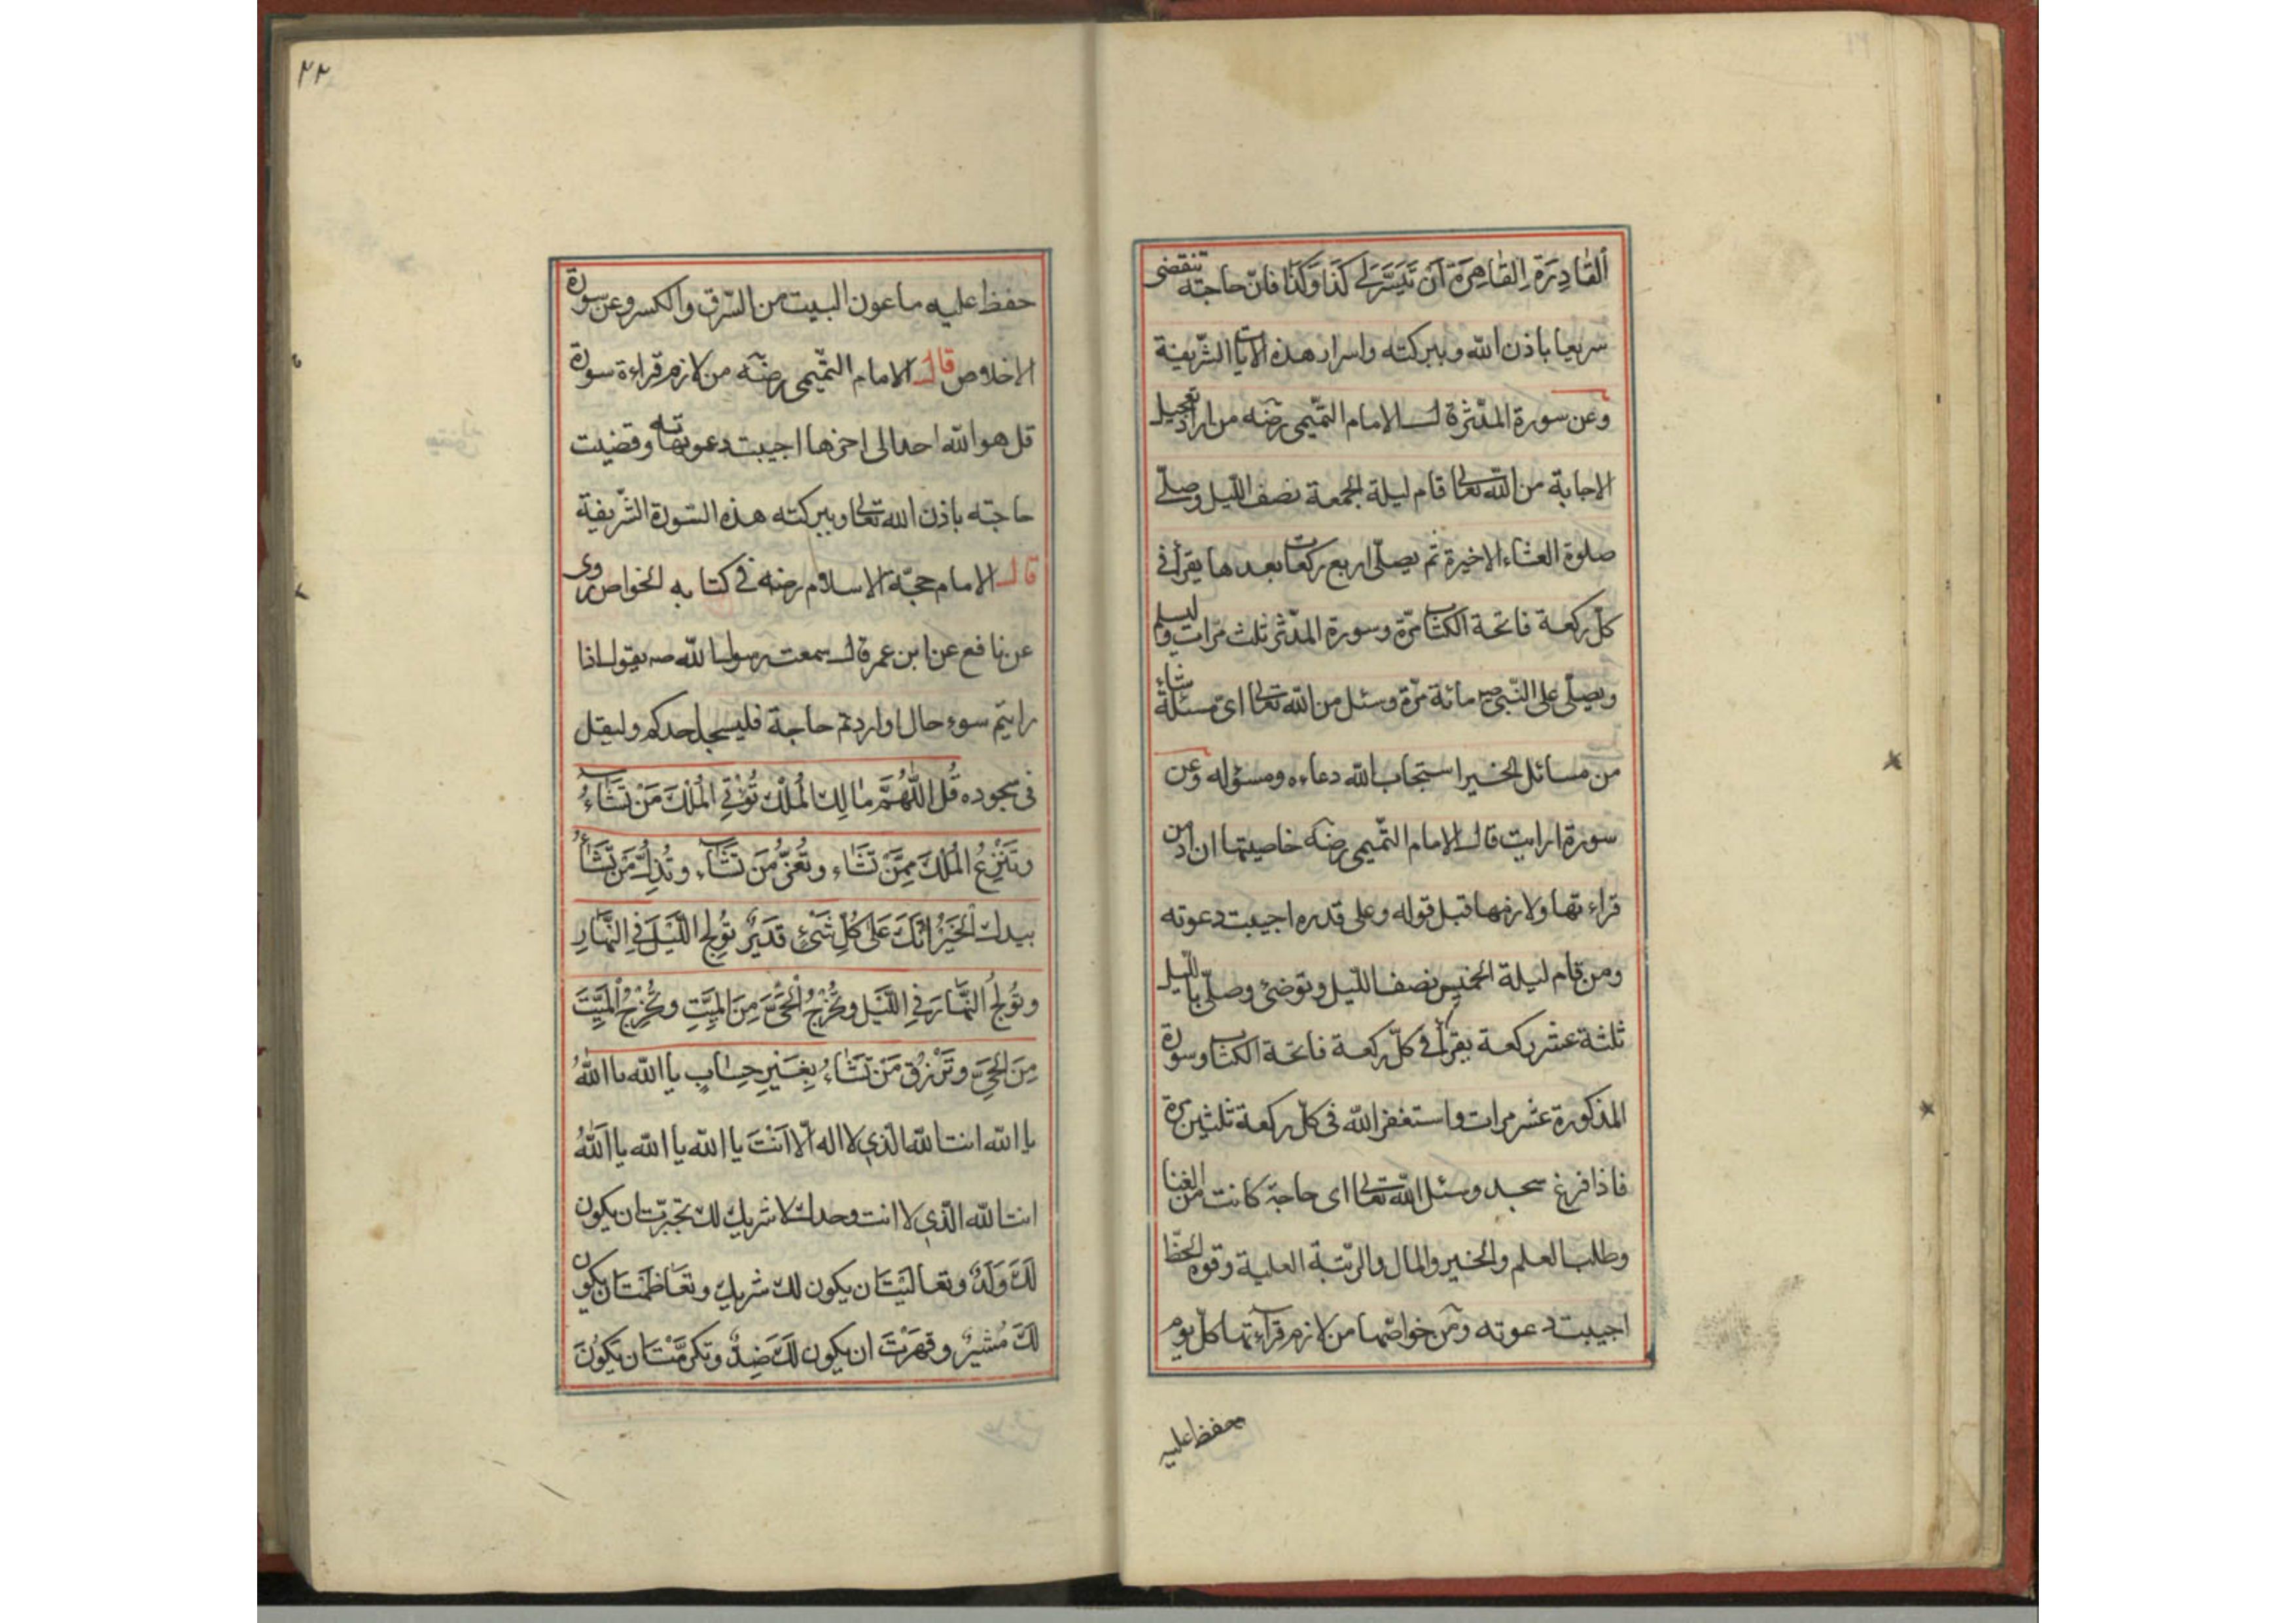 ألقادِرَةِ القاهِرَةِ اَن تَيَسَّرَلي كَذا وَكَذا فانّ حاجته تنقضى
سريعا باذن الله وببركته واسرار هذه الايات الشّريفة
وعن سورة المدّثر قال الامام التّميمى رضه من اراد تعجيل
الاجابة من الله تعالى قام ليلة الجمعة نصف اللّيل وصلّى
صلوة العشاء الاخيرة ثم يصلّى اربع ركعات بعدها يقرأ فى
كلّ ركعة فاتحة الكتاب مرّة وسورة المدّثر ثلث مرّات وليسلم
ويصلّى على النّبى صه مائة مرّة وسئل من الله تعالى اى مسئلة شاء
من مسائل الخير استجاب الله دعاءه ومسؤله وعن
سورة ارايت قال الامام التّميمى رضه خاصيتها ان ادمن
قراءتها ولازمها قبل قوله وعلى قدره اجيبت دعوته
ومن قام ليلة الخميس نصف اللّيل وتوضئ وصلّى باللّيل
ثلثة عشر ركعة يقرأ فى كلّ ركعة فاتحة الكتاب وسورة
المذكورة عشر مرات واستغفر الله فى كلّ ركعة ثلثين مرة
فاذا فرغ سجد وسئل الله تعالى اى حاجة كانت من الغنا
وطلب العلم والخير والمال والرّتبة العلية وقوه الحظّ
اجيبت دعوته ومن خواصّها من لازم قرآءتها كلّ يوم
حفظ عليه
٢٢
حفظ عليه ماعون البيت من السّرق والكسر وعن سورة
الاخلاص قال الامام التّميمى رضه من لازم قراءة سورة
قل هو الله احد الى اخرها اجيبت دعوته وقضيت
حاجته باذن الله تعالى وببركته هذه السّورة الشّريفة
قال الامام حجّة الاسلام رضه فى كتابه الخواص روى
عن نافع عن ابن عمر قال سمعت رسول الله صه يقول اذا
رايتم سوء حال او اردتم حاجة فليسجد احدكم وليقل
فى سجوده قُل اللّهُمَّ مالِكَ المُلْكِ تُؤْتِي المُلْكَ مَنْ تَشَاءُ
وتَنْزِعُ المُلْكَ مِمَّنْ تَشَاء وتُعِزُّ مَن تَشَاء وتُذِلُّ مَن تَشَاءُ
بيدك الخَيْرُ اِنَّكَ عَلى كُلِّ شَيْءٍ قَديرٌ تُولِج اللَّيْلَ فِي النَّهارِ
وتُولِجُ النَّهارَ فِي اللَّيْل وتُخْرِجُ الْحَيَّ مِنَ المَيِّتِ وتُخْرِجُ المَيِّتَ
مِنَ الحَيِّ وتَرْزُق مَنْ تَشَاءُ بِغَيْرِ حِسابٍ يا الله يا اللهُ
يا الله انت الله الّذي لا اله الّا اَنْتَ يا الله يا الله يا اَللهُ
انت الله الّذي لا انت وحدك لا شريك لك تجبرّت ان يكون
لَكَ وَلَدٌ وتعاليَتَ ان يكون لك شريك وتعَاظَمْتَ ان يكون
لَكَ مُشيرٌ وقهَرْتَ ان يكون لَكَ ضِدٌّ وتكرمَّتَ ان يَكُونَ